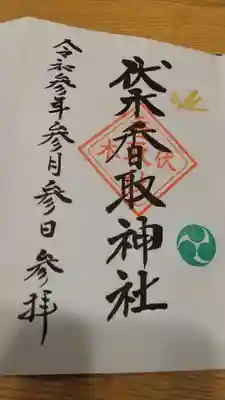 伏木香取神社
令和参年参月参日参拝